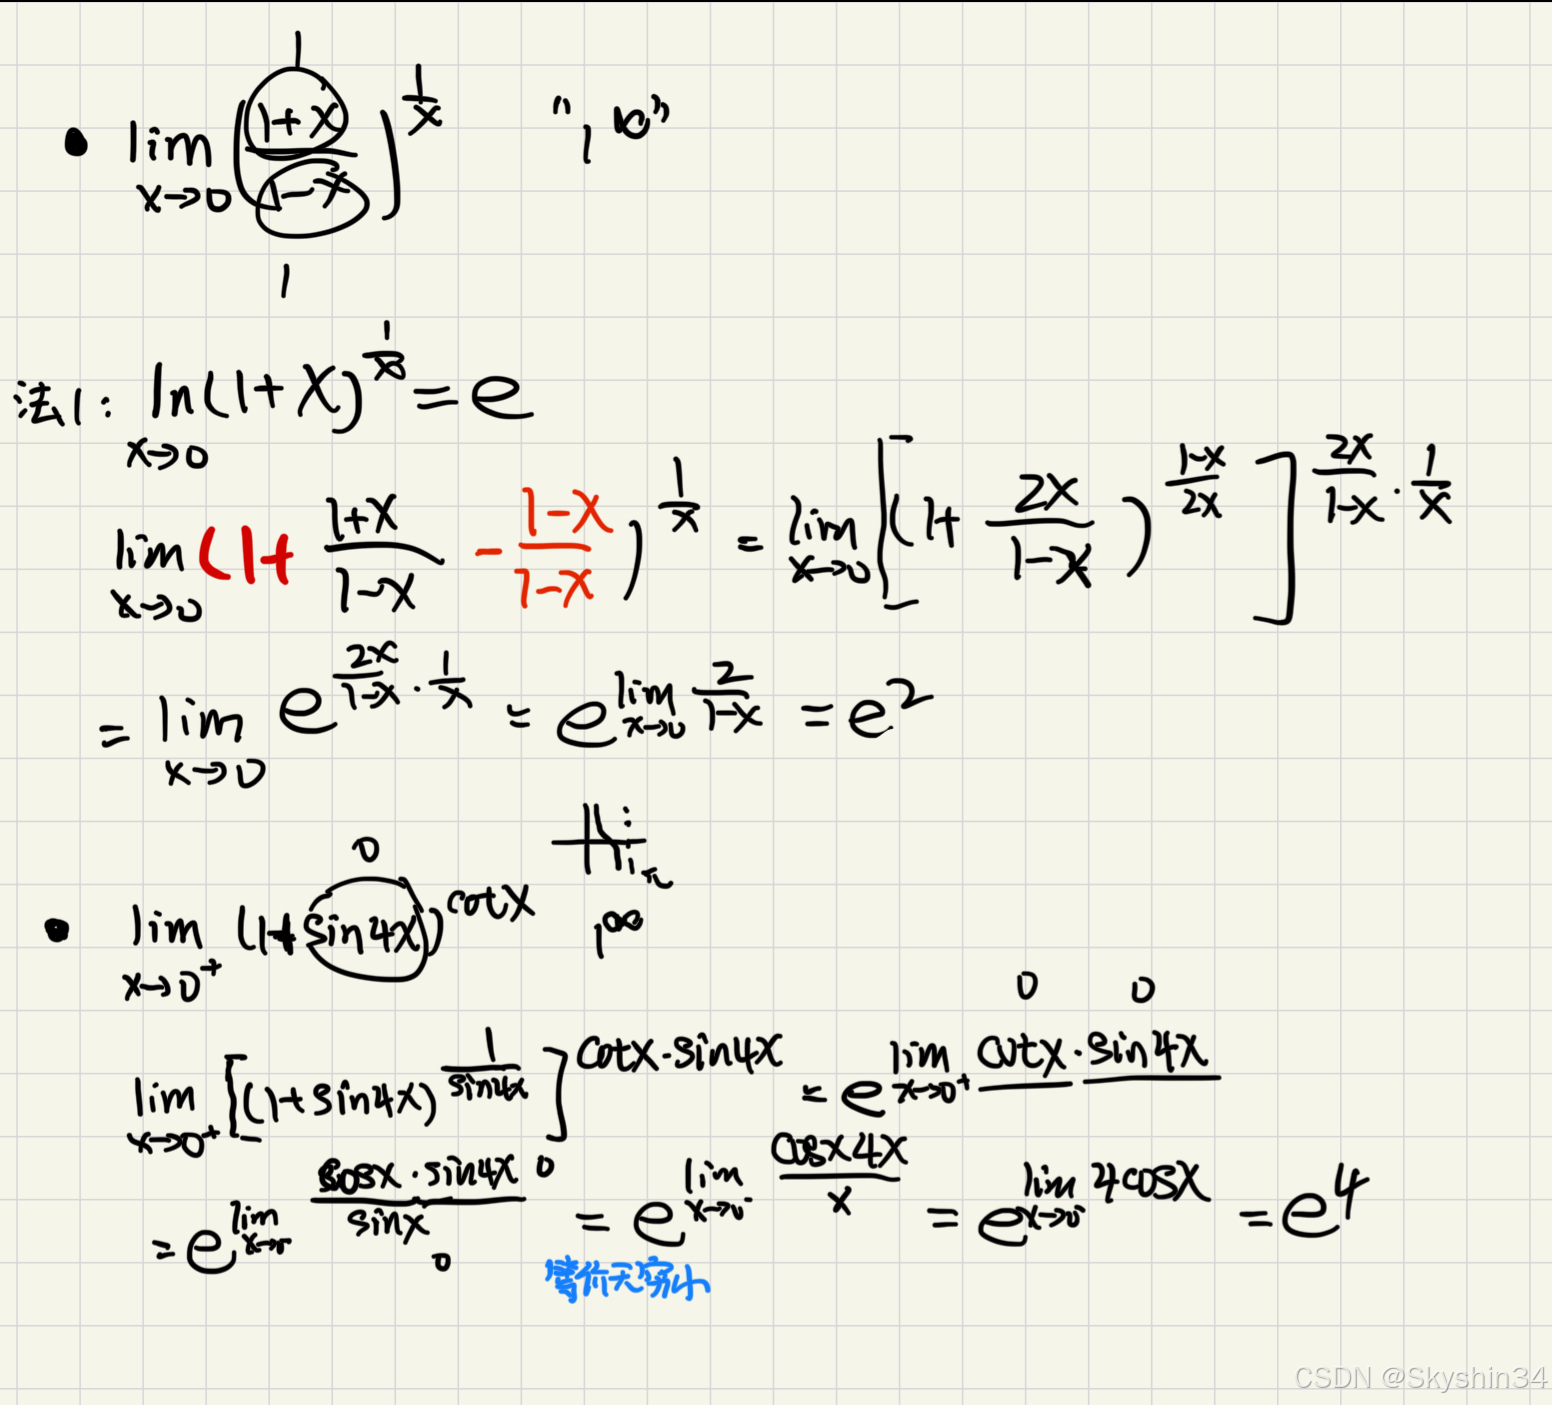 1
• lim x→0 (1+x / 1-x)^(1/x) "1^∞"
1
法1: ln(1+x)^(1/x) = e
x→0
lim x→0 (1+ 1+x/1-x - 1-x/1-x)^(1/x) = lim x→0 [(1+ 2x/1-x)^(1-x/2x)]^(2x/1-x · 1/x)
= lim x→0 e^(2x/1-x · 1/x) = e^(lim x→0 2/1-x) = e^2
0
• lim x→0+ (1+sin4x)^cotx 1^∞
0 0
lim x→0+ [(1+sin4x)^(1/sin4x)]^(cotx·sin4x) = e^(lim x→0+ cotx·sin4x)
= e^(lim x→0 cosx·sin4x 0 / sinx 0) = e^(lim x→0 cosx4x / x) = e^(lim x→0 4cosx) = e^4
等价无穷小
CSDN @Skyshin34